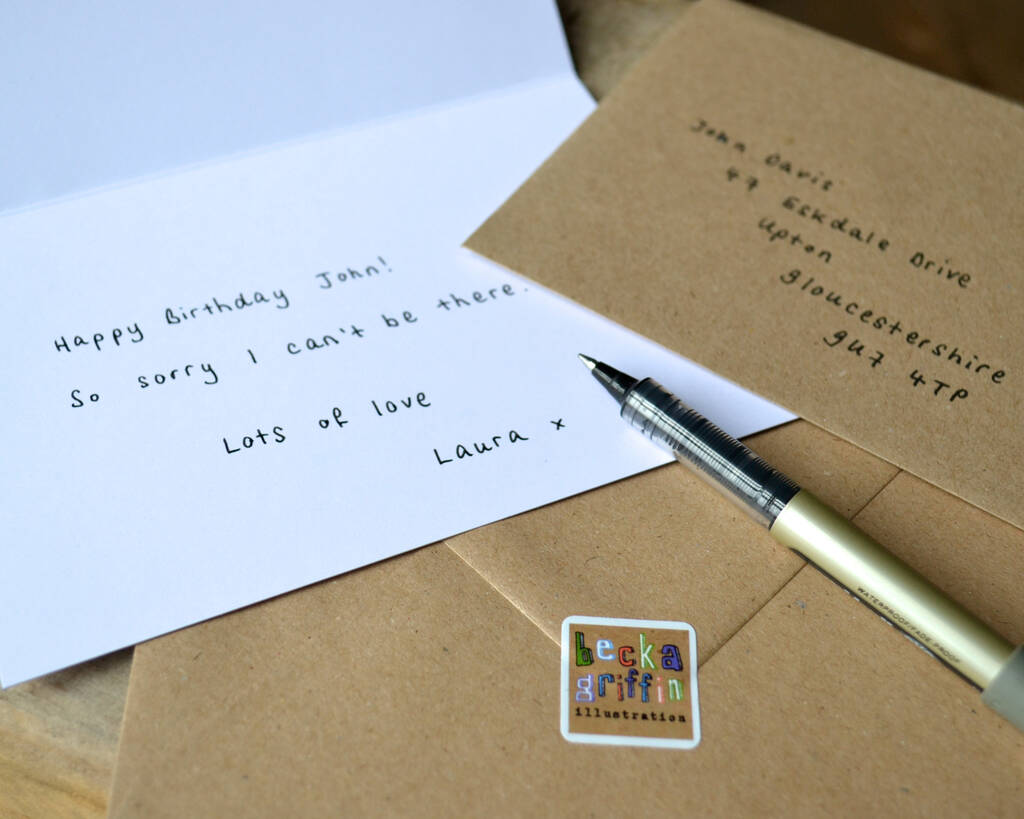 Happy Birthday John!
So sorry I can't be there.
Lots of love
Laura x
John Davis
47 Eskdale Drive
Upton
Gloucestershire
GU7 4TP
WATERPROOF/FADE PROOF
becka
griffin
illustration